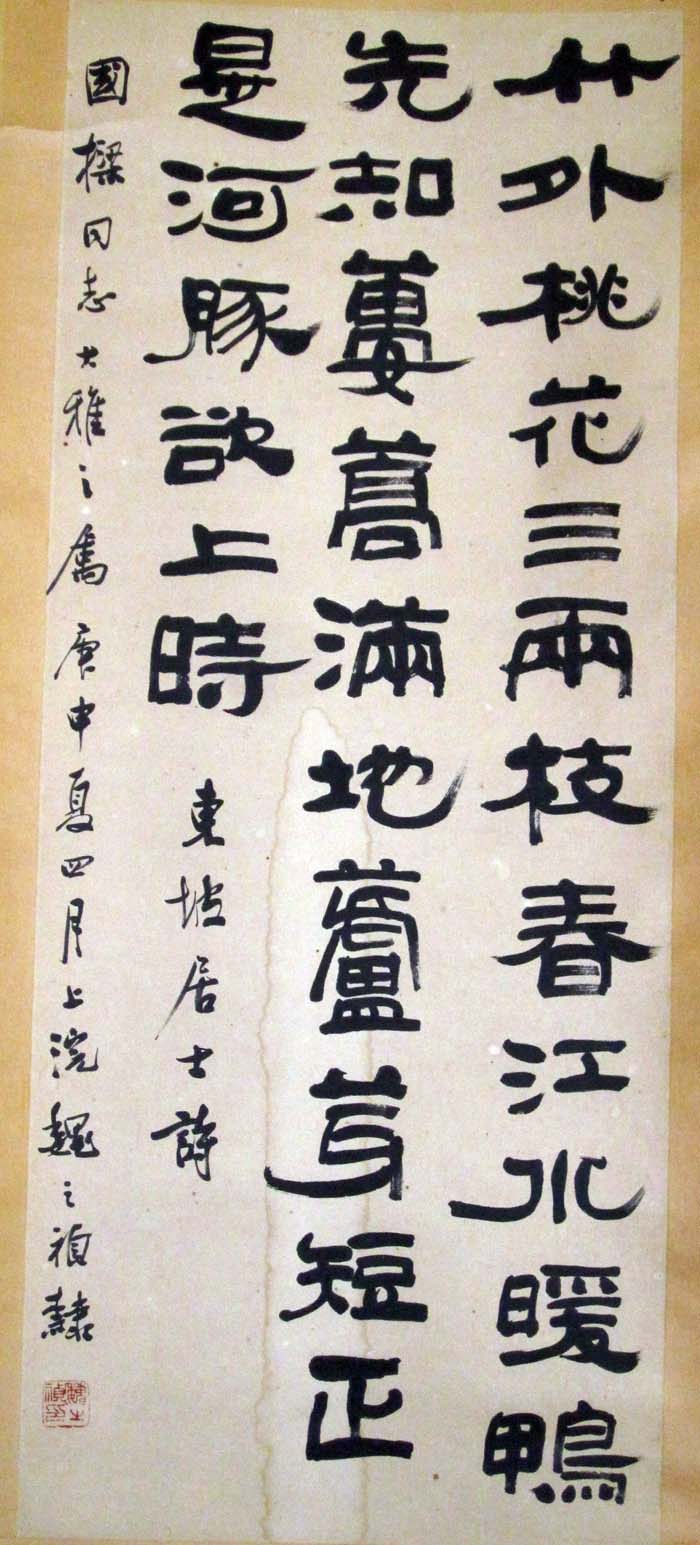 竹外桃花三兩枝春江水暖鴨
先知蔞蒿滿地蘆芽短正
是河豚欲上時
東坡居士詩
國樑同志大雅之屬庚申夏四月上浣魏之禎隸
魏之禎印